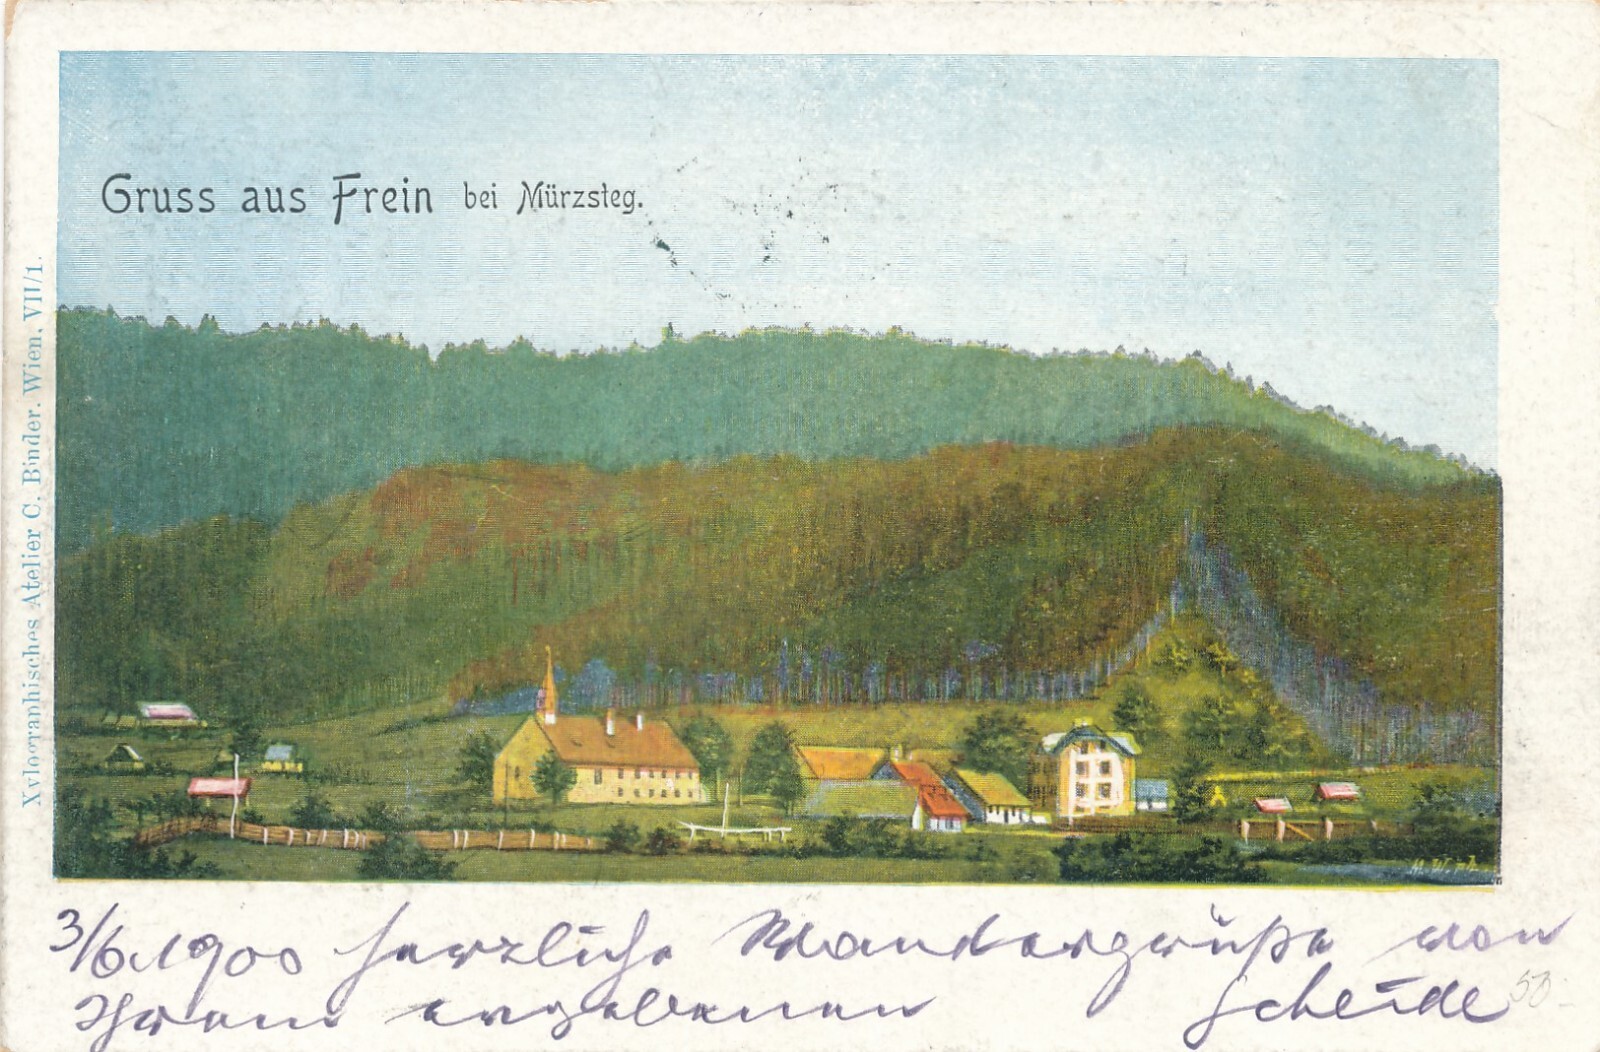 Gruss aus Frein bei Mürzsteg.
Xylographisches Atelier C. Binder. Wien. VII/1.
3/6.1900 herzliche Wandergrüße von
Ihrem ergebenen Scheidl
53.-